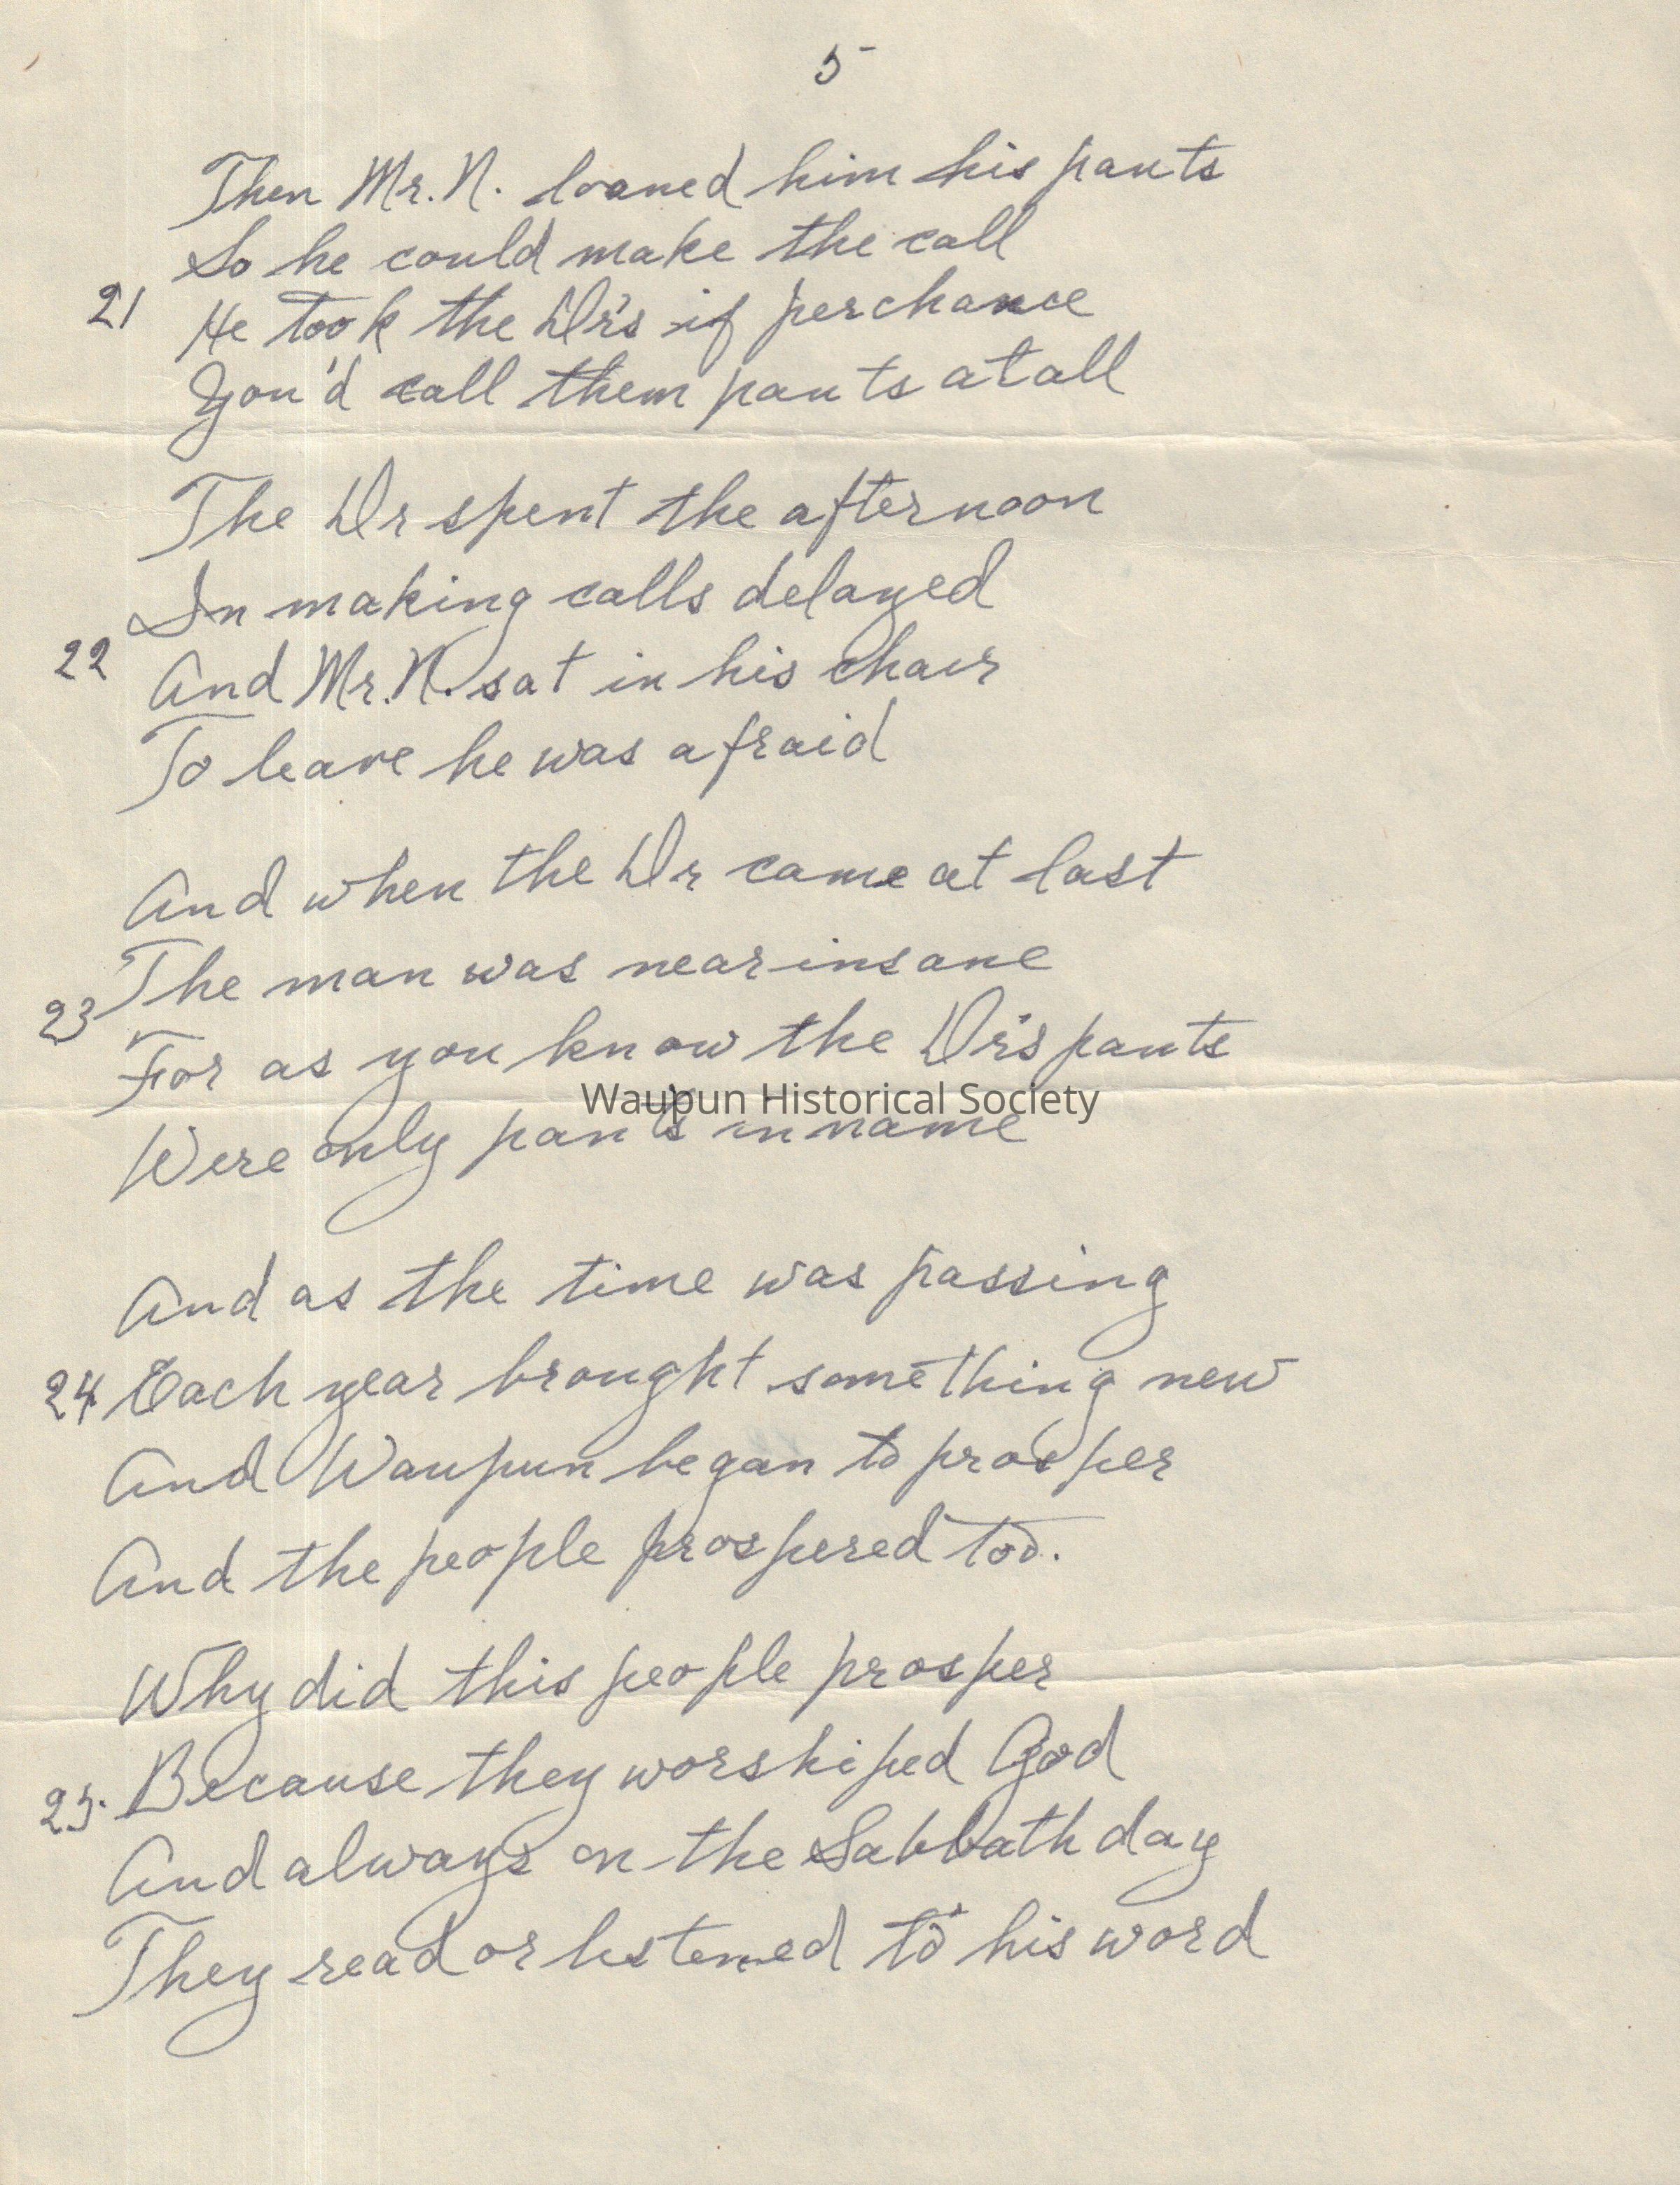 5
Then Mr. N. loaned him his pants
So he could make the call
21 He took the Dr's if perchance
You'd call them pants at all
The Dr spent the afternoon
In making calls delayed
22 And Mr. N. sat in his chair
To leave he was afraid
And when the Dr came at last
The man was near insane
23 For as you know the Dr's pants
Waupun Historical Society
Were only pants in name
And as the time was passing
24 Each year brought something new
And Waupun began to prosper
And the people prospered too.
Why did this people prosper
25. Because they worshiped God
And always on the Sabbath day
They read or listened to his word